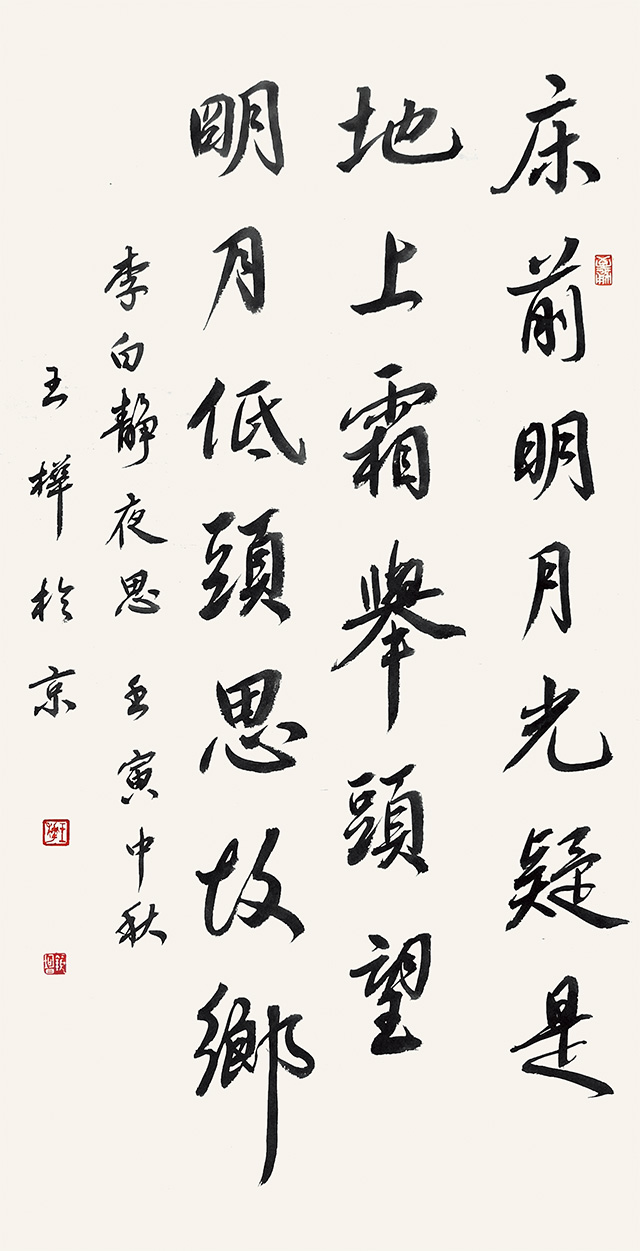 床前明月光疑是
地上霜舉頭望
明月低頭思故鄉
李白靜夜思 壬寅中秋
王樺於京